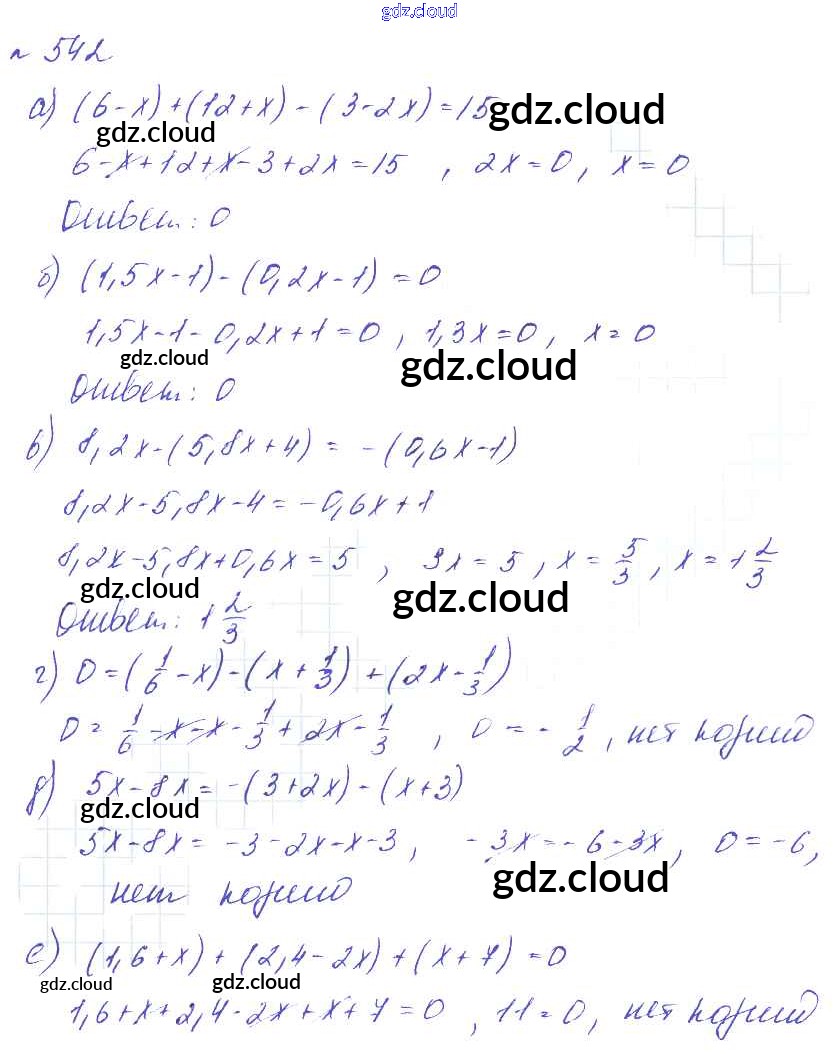 gdz.cloud
№ 542
а) (6-x)+(12+x)-(3-2x)=15 gdz.cloud
gdz.cloud
6-x+12+x-3+2x=15, 2x=0, x=0
Ответ: 0
б) (1,5x-1)-(0,2x-1)=0
1,5x-1-0,2x+1=0, 1,3x=0, x=0
gdz.cloud gdz.cloud
Ответ: 0
в) 8,2x-(5,8x+4)= -(0,6x-1)
8,2x-5,8x-4=-0,6x+1
8,2x-5,8x+0,6x=5, 3x=5, x=5/3, x=1 2/3
gdz.cloud gdz.cloud
Ответ: 1 2/3
г) 0=(1/6-x)-(x+1/3)+(2x-1/3)
0=1/6-x-x-1/3+2x-1/3, 0=-1/2, нет корней
д) 5x-8x=-(3+2x)-(x+3)
gdz.cloud
5x-8x= -3-2x-x-3, -3x=-6-3x, 0=-6,
gdz.cloud
нет корней
е) (1,6+x)+(2,4-2x)+(x+7)=0
gdz.cloud gdz.cloud
1,6+x+2,4-2x+x+7=0, 11=0, нет корней